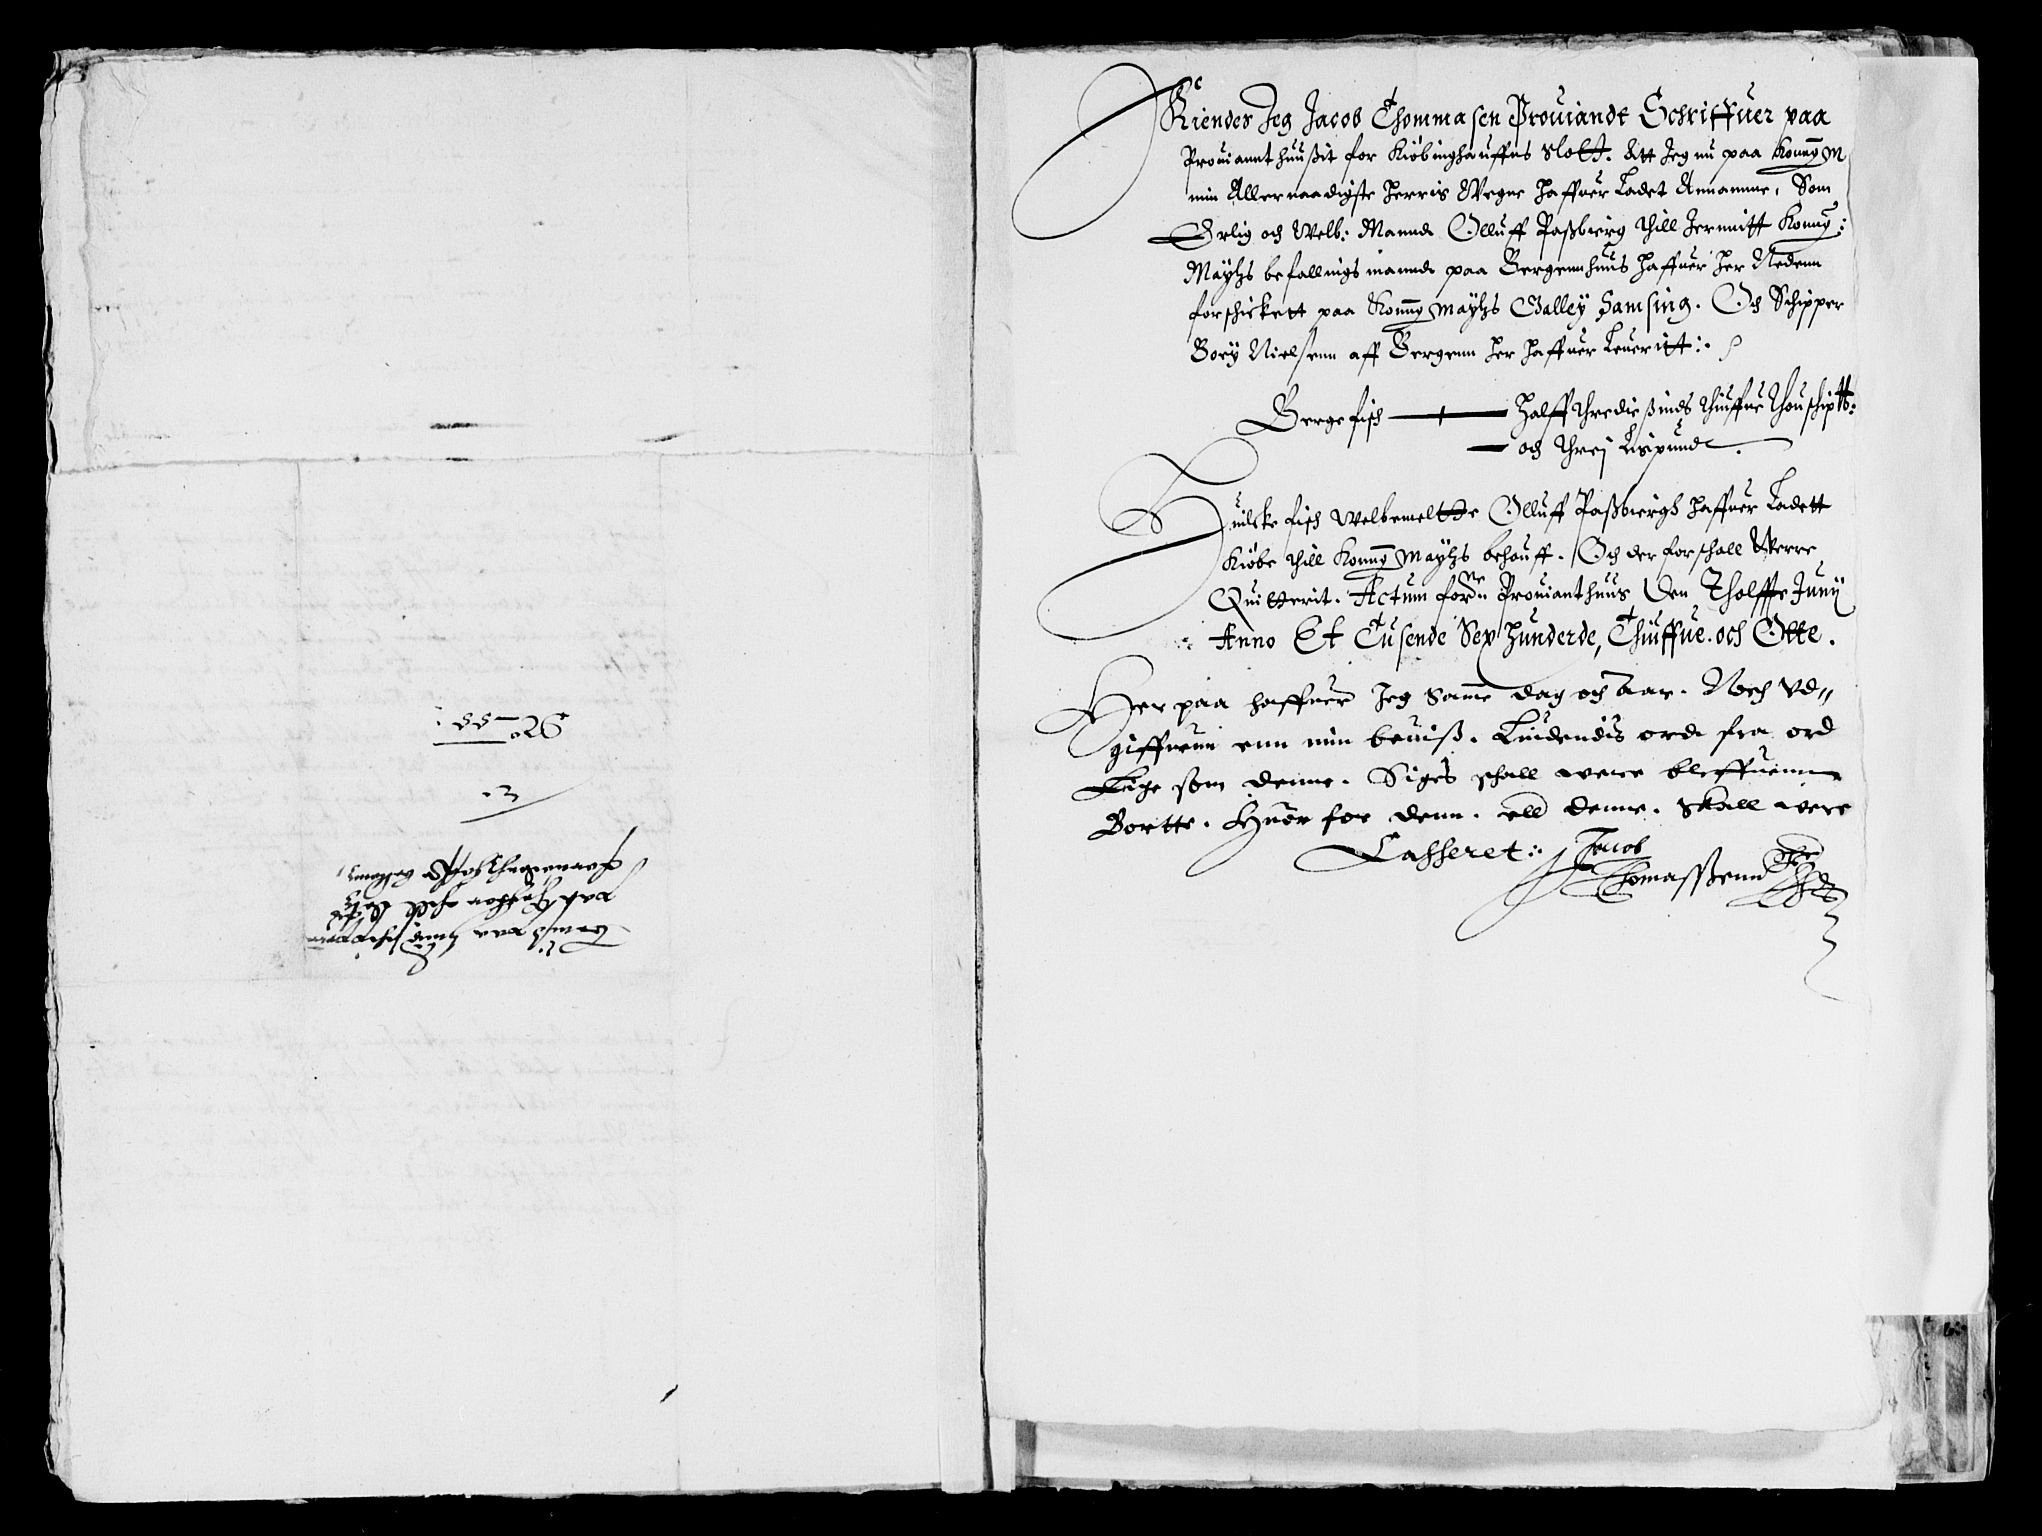 Kiendes Jeg Jacob Thommasen Prouiandt Schriffuer paa
Prouiannthuußit for Kiøbinghauffns slott. Att Jeg nu paa Konng M
min Allernaadigste herris Wegne haffuer Ladet Annamme, Som
Erlig och Welb: Mannd Olluff Paßbierg thill Jernnitt Konng:
Maÿtzs befallings mannd paa Bergennhuus haffuer her Nedenn
forschickett paa Konng Maÿtzs Galley Samsing. Och Schipper
Boeÿ Nielsenn aff Bergenn her haffuer Leueritt:
Bergefisch halff thredie ßinds thiuffue thou schip ℔:
och threj Lispund.
Huilcke fisch Welbemeltte Olluff Paßbiergh haffuer Ladett
Kiøbe thill Konng Maÿtzs behouff. Och der for schall Werre
Quitterit. Actum forne Prouianthuus Den Tholffte Junij
Anno Et Tusende Sex hunderde, Thiuffue och Otte.
Her paa haffuer Jeg Same dag och aar. Noch vd„
giffuenn enn min beuiß. Liudendis ord fra ord
Lige som denne. Siges schall were bleffuenn
Bortte. Huor for denn. ell denne. Skall were
Casseret: Jacob
Thomasßenn
No 55:
3